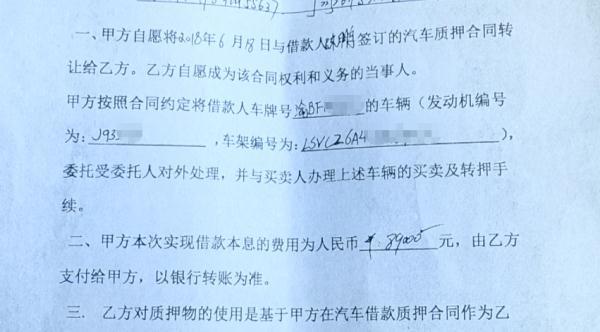 一、甲方自愿将2018年6月18日与借款人签订的汽车质押合同转
让给乙方。乙方自愿成为该合同权利和义务的当事人。
甲方按照合同约定将借款人车牌号渝BF的车辆（发动机编号
为：J93，车架编号为：LSVCZ6A4），
委托受委托人对外处理，并与买卖人办理上述车辆的买卖及转押手
续。
二、甲方本次实现借款本息的费用为人民币¥：89000元，由乙方
支付给甲方，以银行转账为准。
三．乙方对质押物的使用是基于甲方在汽车借款质押合同作为乙